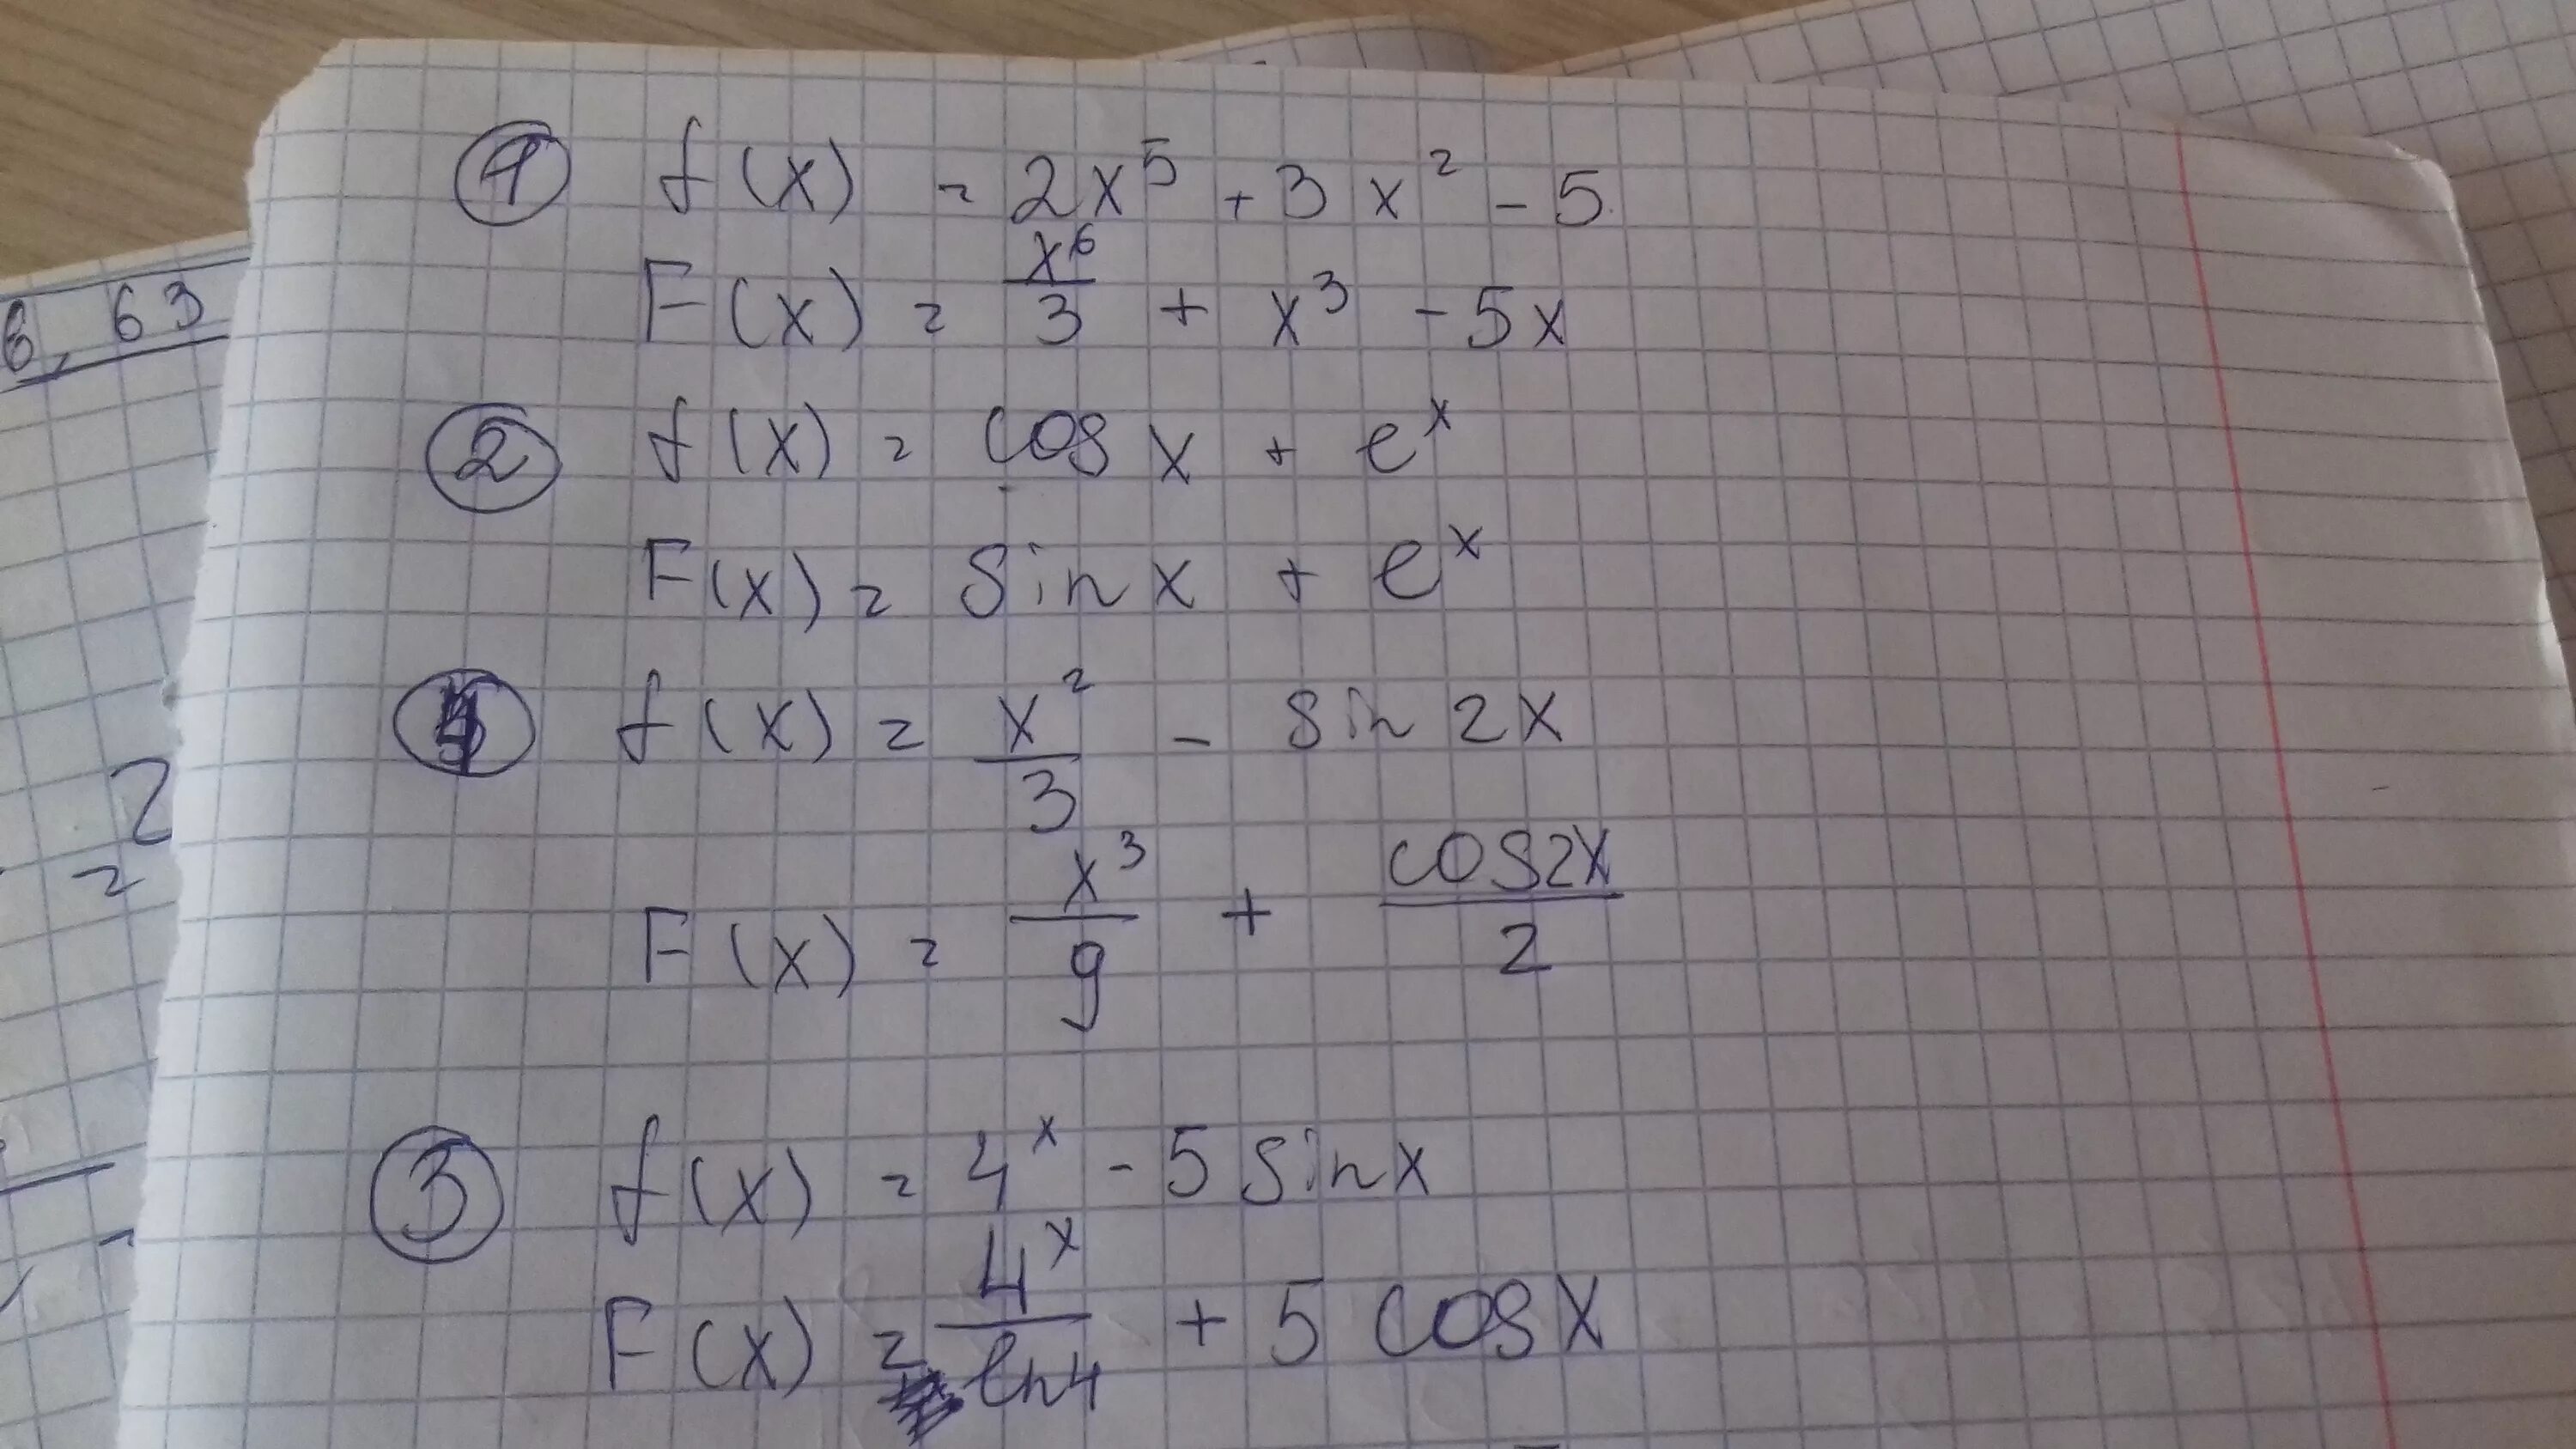 ① f(x) = 2x⁵ + 3x² - 5
F(x) = x⁶/3 + x³ - 5x
② f(x) = cos x + eˣ
F(x) = sin x + eˣ
④ f(x) = x²/3 - sin 2x
F(x) = x³/9 + cos2x/2
③ f(x) = 4ˣ - 5 sinx
F(x) = 4ˣ/ln4 + 5 cosx
8,63
2
=